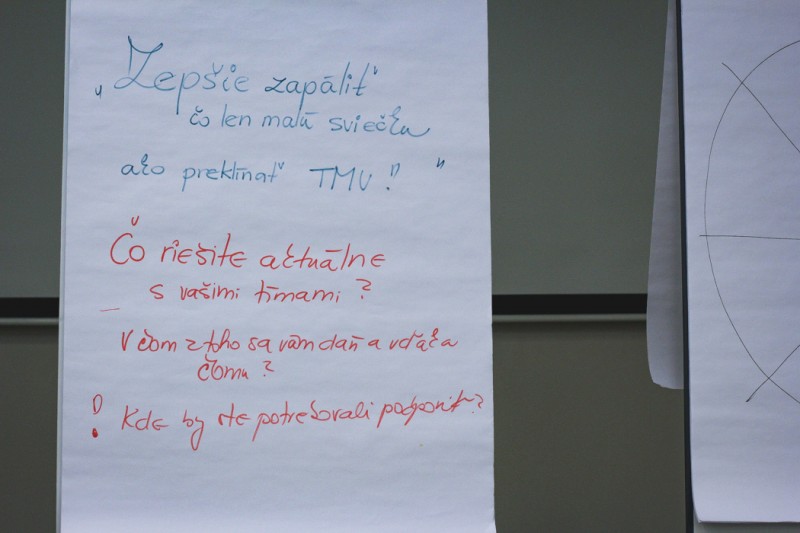 „Lepšie zapáliť
čo len malú sviečku
ako preklínať TMU!"
Čo riešite aktuálne
s vašimi tímami?
V čom z toho sa vám darí a vďaka
čomu?
! Kde by ste potrebovali podporiť?